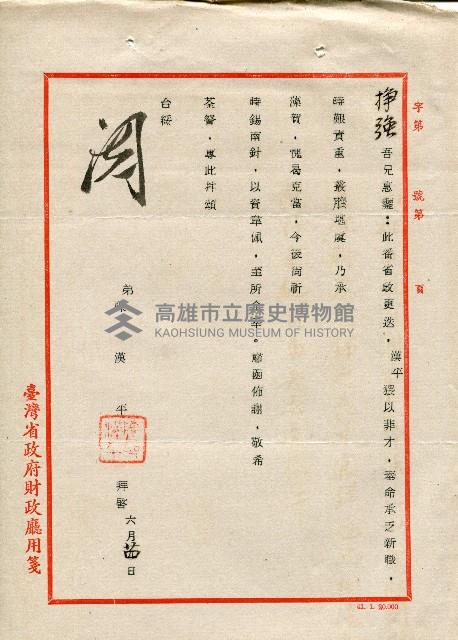 字第　號第　頁
掙強吾兄惠鑒：此番省政更迭，漢平猥以非才，奉命承乏新職，
時艱責重，叢脞堪虞，乃承
藻賀，愧曷克當，今後尚祈
時錫南針，以資韋佩，至所企幸。專函佈謝，敬希
荃詧，專此并頌
台綏
弟陳漢平
拜啓
六月
日
閱
臺灣省政府財政廳用箋
41. 1. 20.000
高雄市立歷史博物館
KAOHSIUNG MUSEUM OF HISTORY